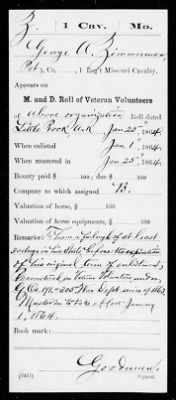 Z. 1 Cav. Mo.
George A. Zimmerman,
Pvt., Co. , 1 Reg't Missouri Cavalry.
Appears on
M. and D. Roll of Veteran Volunteers
of above organization, Roll dated
Little Rock Ark Jan 25", 1864.
When enlisted Jan 1", 1864.
When mustered in Jan 25", 1864.
Bounty paid $ 100; due $ 100
Company to which assigned "B.
Valuation of horse, $ 100
Valuation of horse equipments, $ 100
Remarks: To have a furlough of at least
30 days in his State before the expiration
of his original term of enlistment,
as Veteran Volunteers under
G.O. 191 & 305 War Dept. series of 1863
Muster in to take effect January
1, 1864.
Book mark:
Goodman
(341) Copyist.